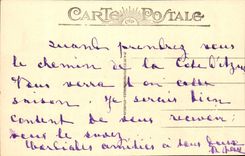 CARTE POSTALE
Quand prendrez vous
le chemin de la Côte d'Azur
Vous verra t'on cette
saison. Je serais bien
content de vous recevoir
vous le savez.
Cordiales amitiés à tous deux